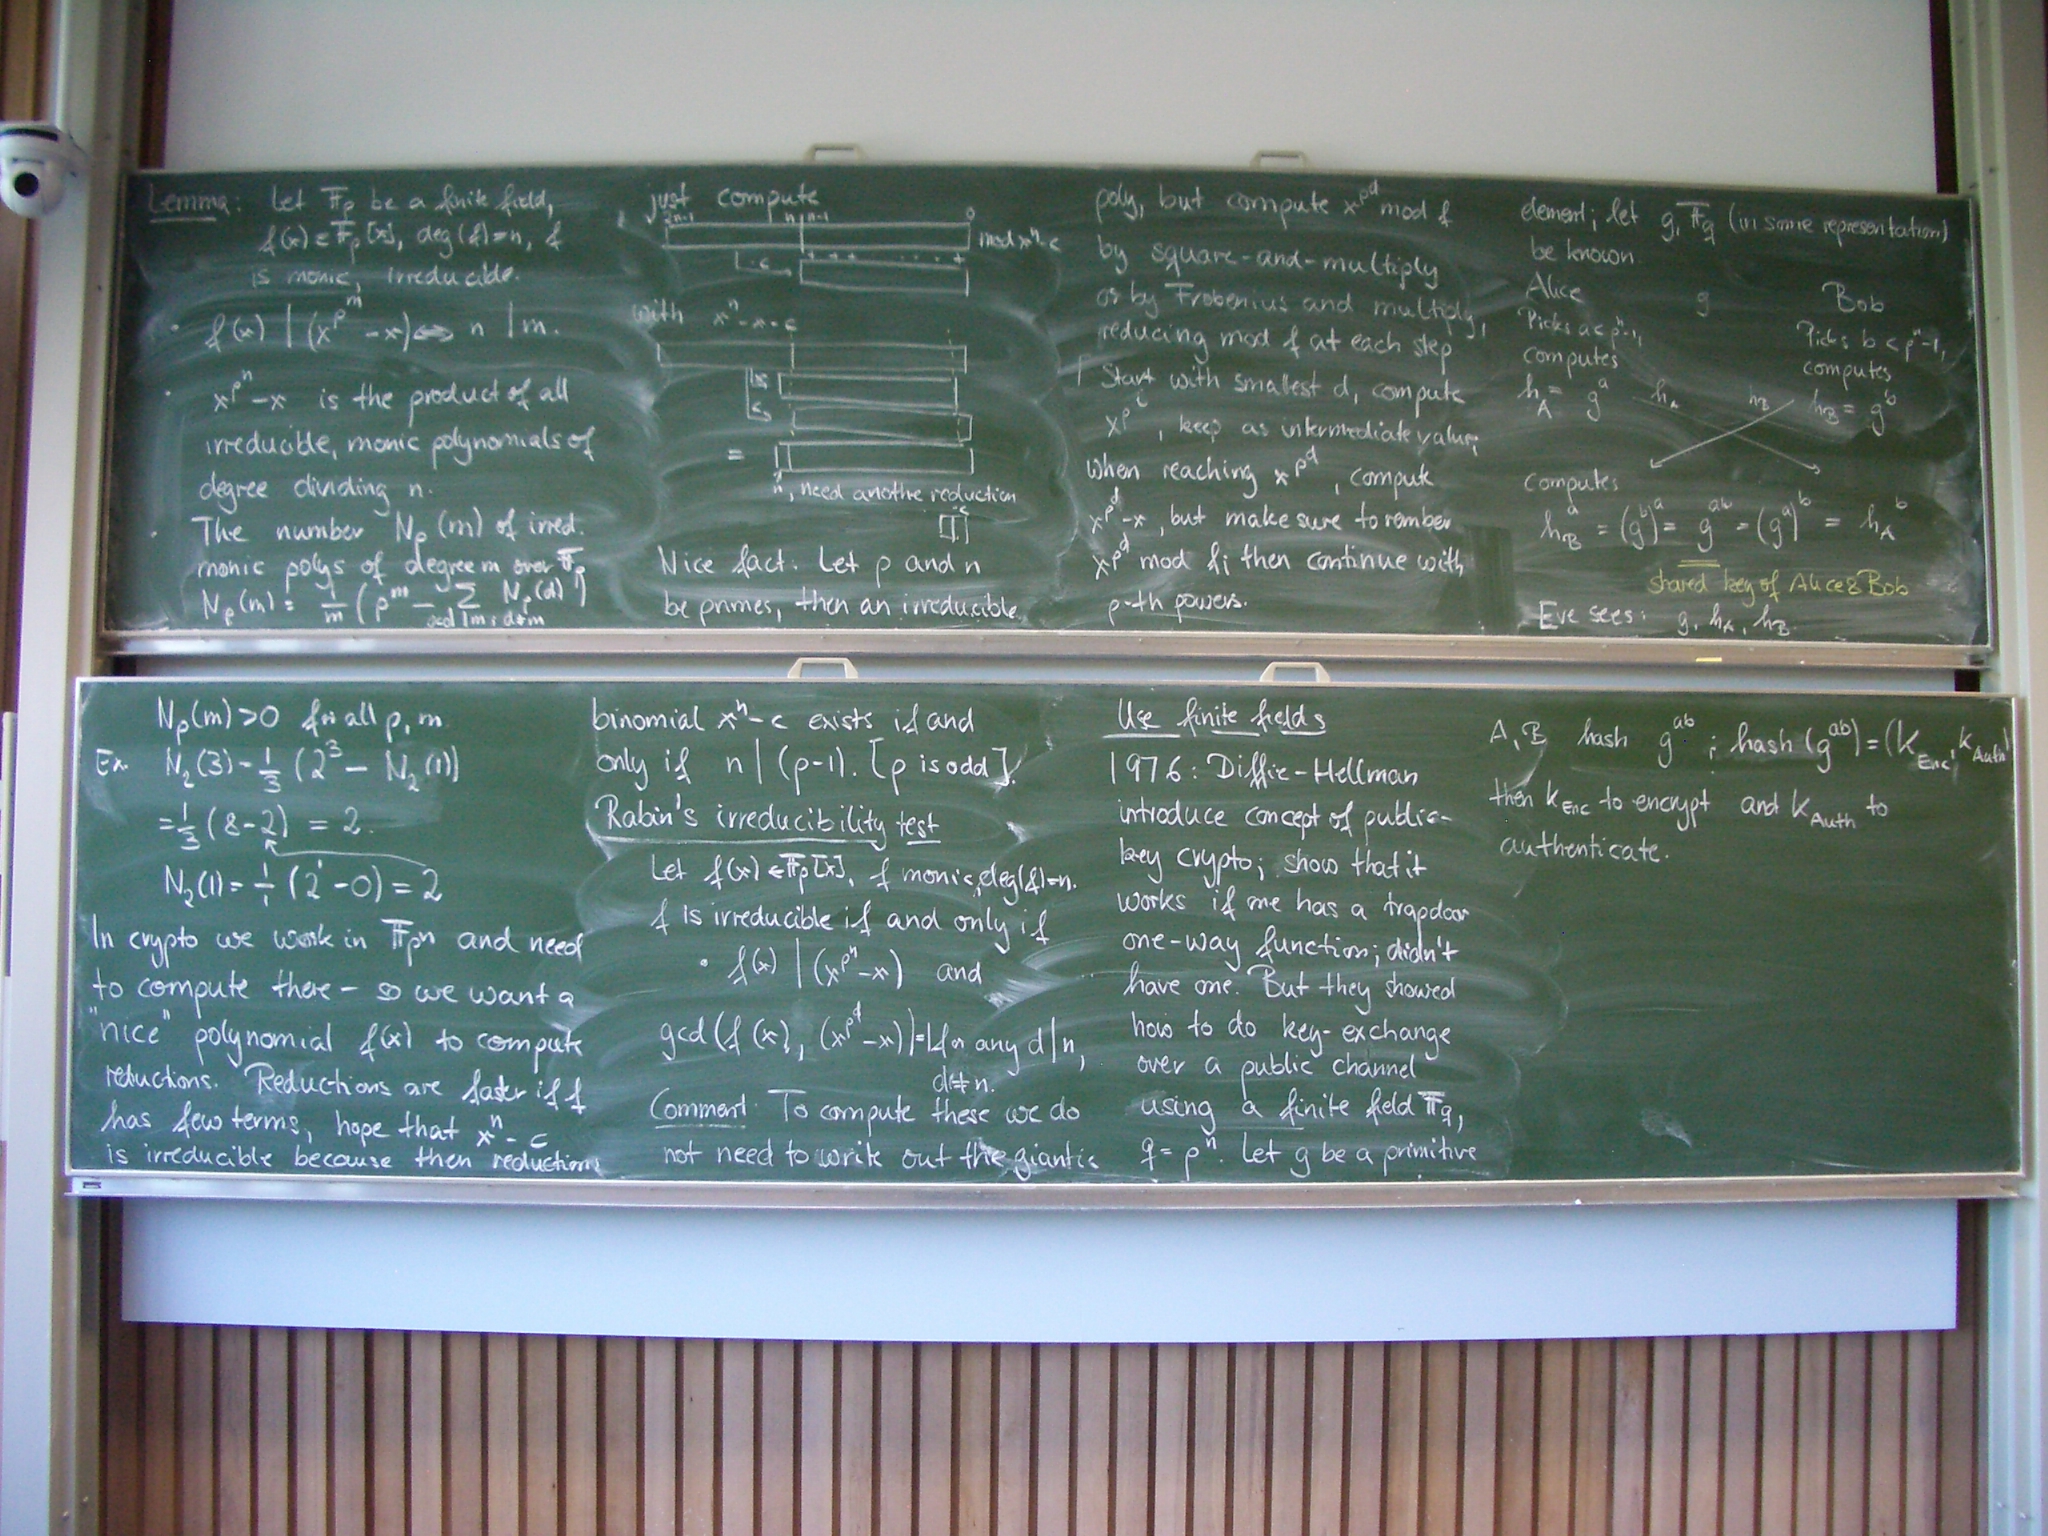 Lemma: Let 𝔽p be a finite field,
f(x) ∈ 𝔽p[x], deg(f)=n, f
is monic, irreducible.
· f(x) | (x^{p^m} - x) ⇔ n | m.
· x^{p^n} - x is the product of all
irreducible, monic polynomials of
degree dividing n.
· The number Np(m) of irred.
monic polys of degree m over 𝔽p
Np(m) = 1/m (p^m - Σ Np(d) d)
d|m; d≠m
Np(m) > 0 for all p, m
Ex. N2(3) = 1/3 (2^3 - N2(1))
= 1/3 (8-2) = 2.
N2(1) = 1/1 (2^1 - 0) = 2
In crypto we work in 𝔽p^n and need
to compute there - so we want a
"nice" polynomial f(x) to compute
reductions. Reductions are faster if f
has few terms, hope that x^n - c
is irreducible because then reductions
just compute
2n-1 n n-1 0
mod x^n - c
1·c + + + .... +
with x^n - x - c
=
n, need anothre reduction
Nice fact: Let p and n
be primes, then an irreducible
binomial x^n - c exists if and
only if n | (p-1). [p is odd].
Rabin's irreducibility test
Let f(x) ∈ 𝔽p[x], f monic, deg(f)=n.
f is irreducible if and only if
· f(x) | (x^{p^n} - x) and
gcd (f(x), (x^{p^d} - x)) = 1 for any d|n,
d≠n.
Comment: To compute these we do
not need to write out the giantic
poly, but compute x^{p^d} mod f
by square-and-multiply
or by Frobenius and multiply,
reducing mod f at each step
Start with smallest d, compute
x^{p^i}, keep as intermediate value;
when reaching x^{p^d}, compute
x^{p^d} - x, but make sure to rember
x^{p^d} mod f; then continue with
p-th powers.
Use finite fields
1976: Diffie-Hellman
introduce concept of public-
key crypto; show that it
works if one has a trapdoor
one-way function; didn't
have one. But they showed
how to do key-exchange
over a public channel
using a finite field 𝔽q,
q = p^n. Let g be a primitive
element; let g, 𝔽q (in some representation)
be known.
Alice g Bob
Picks a < p^n-1, Picks b < p^n-1,
computes computes
hA = g^a hA hB hB = g^b
computes
hB^a = (g^b)^a = g^{ab} = (g^a)^b = hA^b
shared key of Alice & Bob
Eve sees: g, hA, hB.
A, B hash g^{ab}; hash (g^{ab}) = (kEnc, kAuth)
then kEnc to encrypt and kAuth to
authenticate.